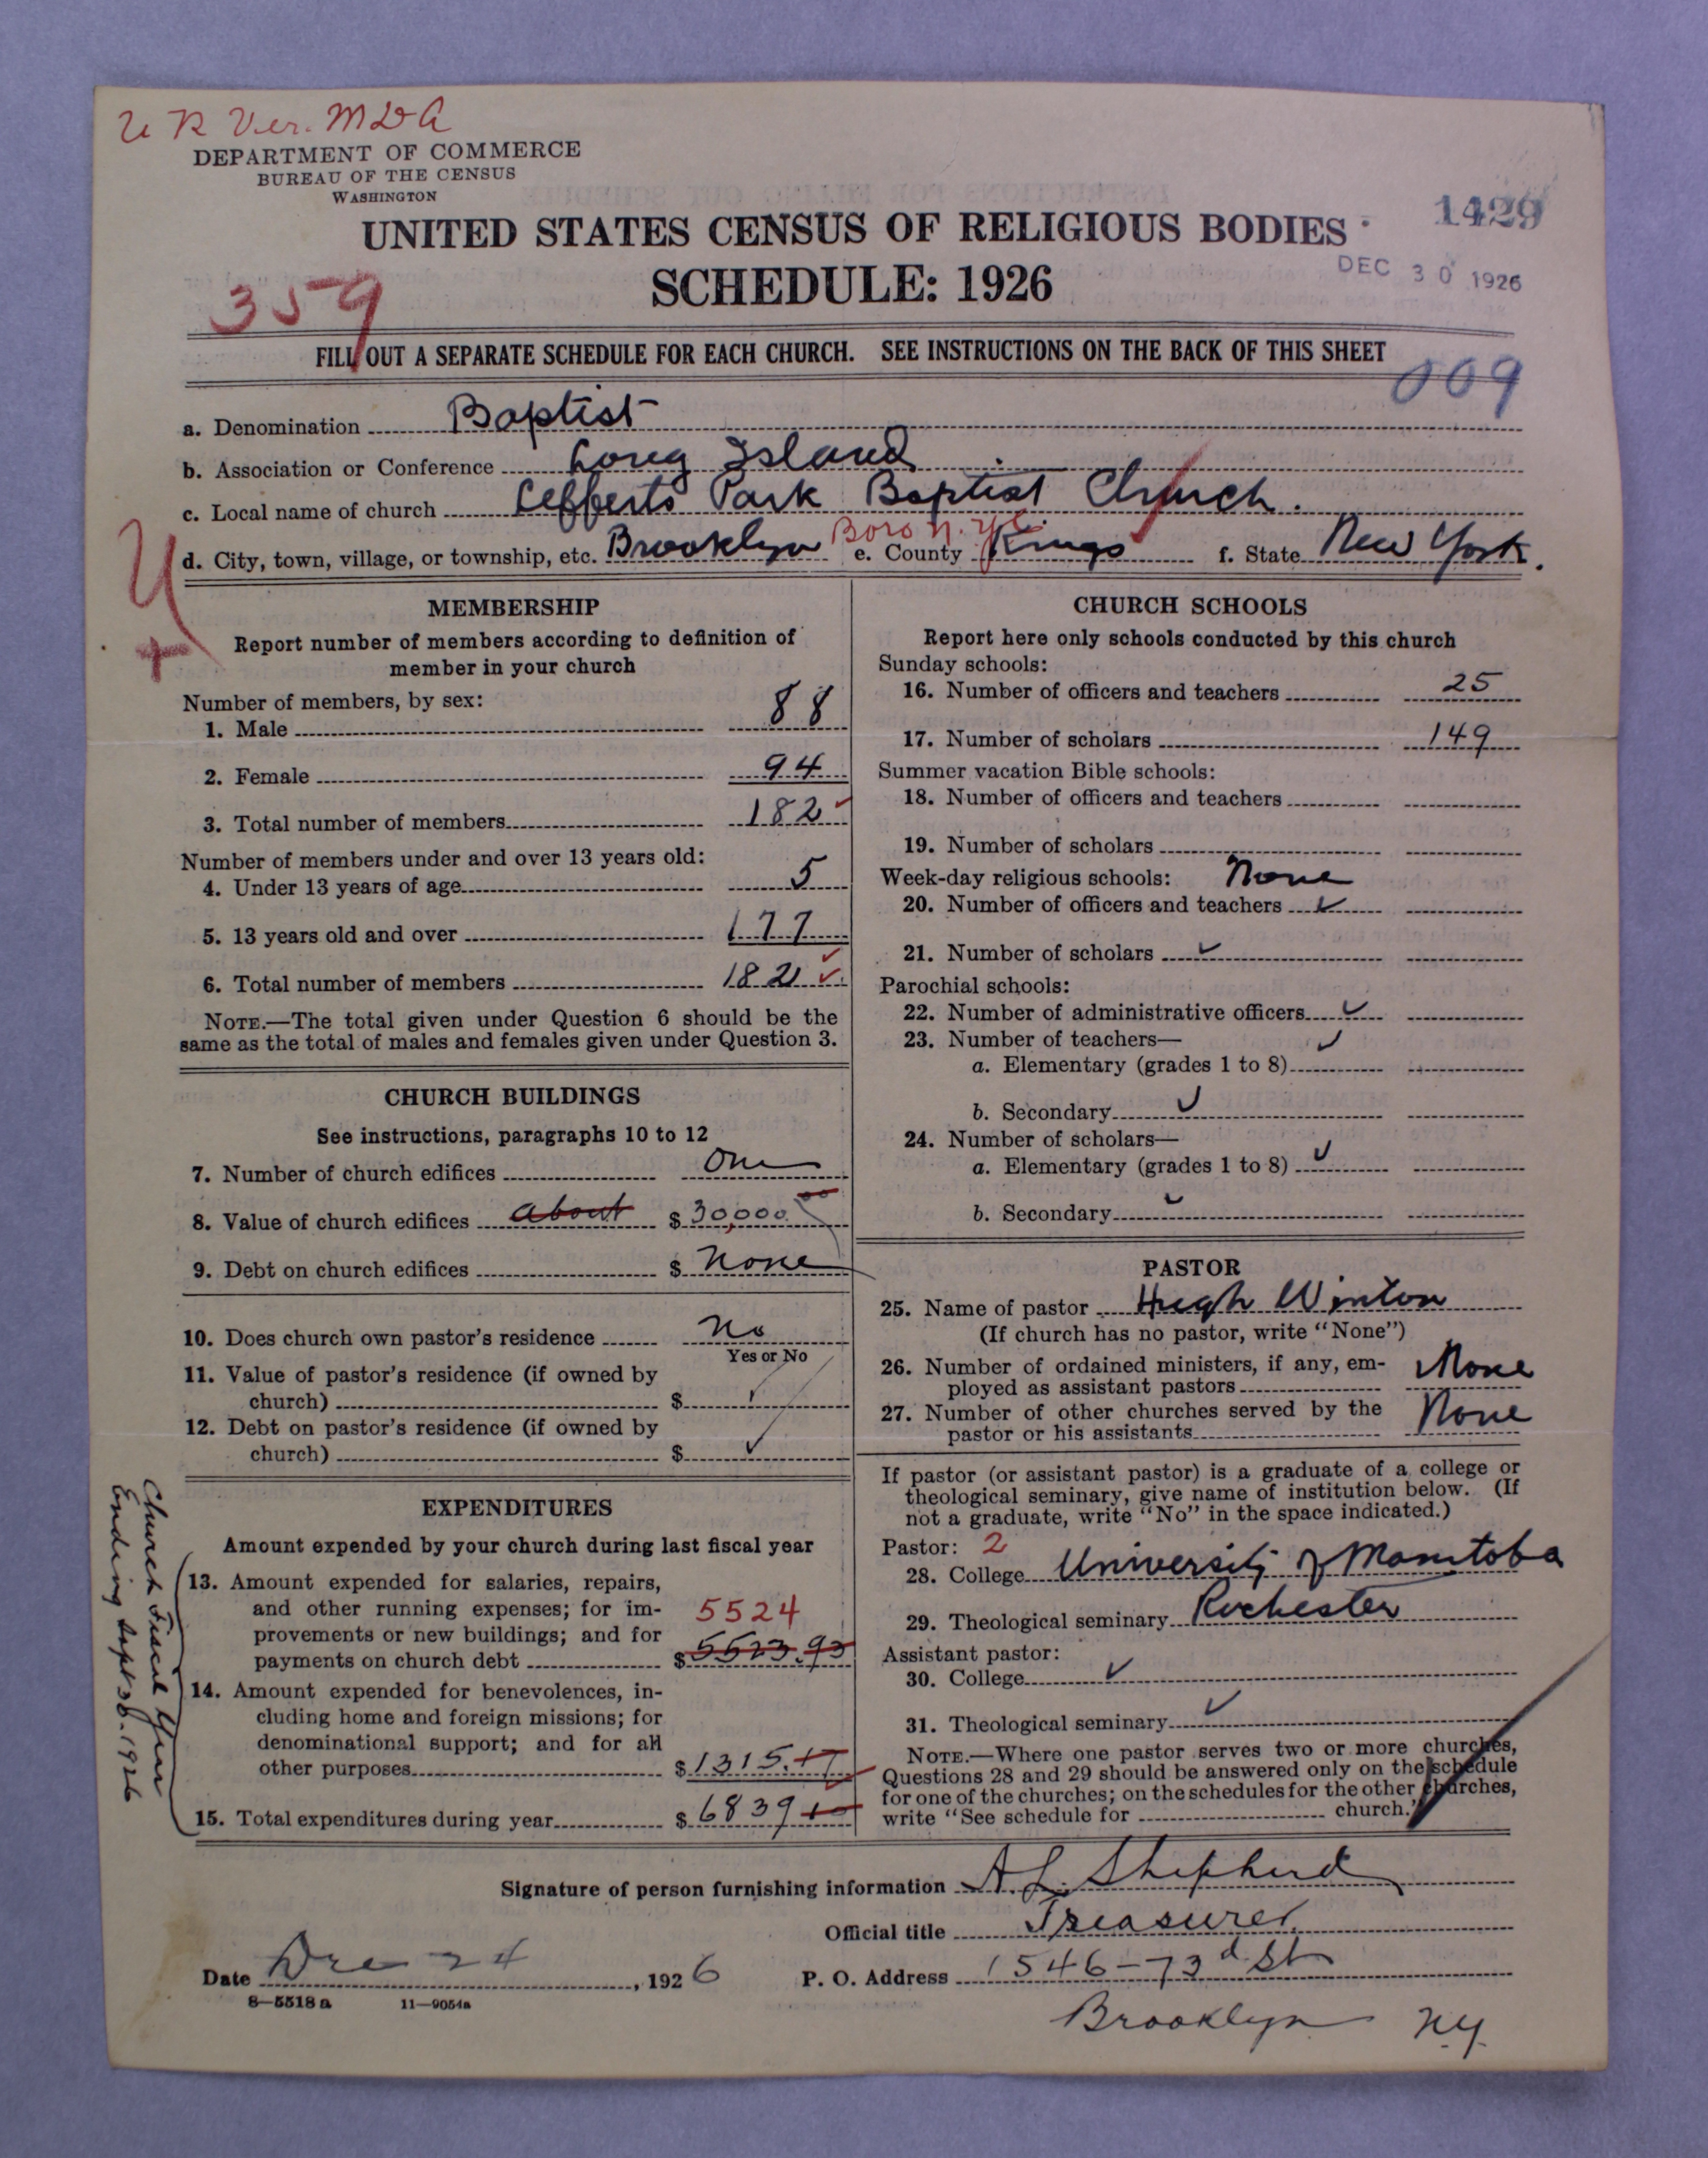 U R Ver. MDA
DEPARTMENT OF COMMERCE
BUREAU OF THE CENSUS
WASHINGTON
1429
UNITED STATES CENSUS OF RELIGIOUS BODIES
DEC 30 1926
SCHEDULE: 1926
359
FILL OUT A SEPARATE SCHEDULE FOR EACH CHURCH. SEE INSTRUCTIONS ON THE BACK OF THIS SHEET
009
a. Denomination Baptist
b. Association or Conference Long Island
c. Local name of church Lefferts Park Baptist Church.
d. City, town, village, or township, etc. Brooklyn Boro N.Y.C. e. County Kings f. State New York.
MEMBERSHIP
Report number of members according to definition of
member in your church
Number of members, by sex:
1. Male 88
2. Female 94
3. Total number of members 182
Number of members under and over 13 years old:
4. Under 13 years of age 5
5. 13 years old and over 177
6. Total number of members 182
NOTE.—The total given under Question 6 should be the
same as the total of males and females given under Question 3.
CHURCH BUILDINGS
See instructions, paragraphs 10 to 12
7. Number of church edifices One
8. Value of church edifices about $ 30,000.00
9. Debt on church edifices $ None
10. Does church own pastor's residence No
Yes or No
11. Value of pastor's residence (if owned by
church) $
12. Debt on pastor's residence (if owned by
church) $
EXPENDITURES
Amount expended by your church during last fiscal year
13. Amount expended for salaries, repairs,
and other running expenses; for im-
5524
provements or new buildings; and for
payments on church debt $ 5523.93
14. Amount expended for benevolences, in-
cluding home and foreign missions; for
denominational support; and for all
other purposes $ 1315.17
15. Total expenditures during year $ 6839 10
Church Fiscal Year
Ending Sept 30-1926
CHURCH SCHOOLS
Report here only schools conducted by this church
Sunday schools:
16. Number of officers and teachers 25
17. Number of scholars 149
Summer vacation Bible schools:
18. Number of officers and teachers
19. Number of scholars
Week-day religious schools: None
20. Number of officers and teachers
21. Number of scholars
Parochial schools:
22. Number of administrative officers
23. Number of teachers—
a. Elementary (grades 1 to 8)
b. Secondary
24. Number of scholars—
a. Elementary (grades 1 to 8)
b. Secondary
PASTOR
25. Name of pastor Hugh Winton
(If church has no pastor, write "None")
26. Number of ordained ministers, if any, em-
ployed as assistant pastors None
27. Number of other churches served by the
pastor or his assistants None
If pastor (or assistant pastor) is a graduate of a college or
theological seminary, give name of institution below. (If
not a graduate, write "No" in the space indicated.)
Pastor: 2
28. College University of Manitoba
29. Theological seminary Rochester
Assistant pastor:
30. College
31. Theological seminary
NOTE.—Where one pastor serves two or more churches,
Questions 28 and 29 should be answered only on the schedule
for one of the churches; on the schedules for the other churches,
write "See schedule for church."
Signature of person furnishing information A. L. Shepherd
Official title Treasurer
Date Dec 24, 1926 P. O. Address 1546-73d St
8-5518a 11-9054a
Brooklyn N.Y.